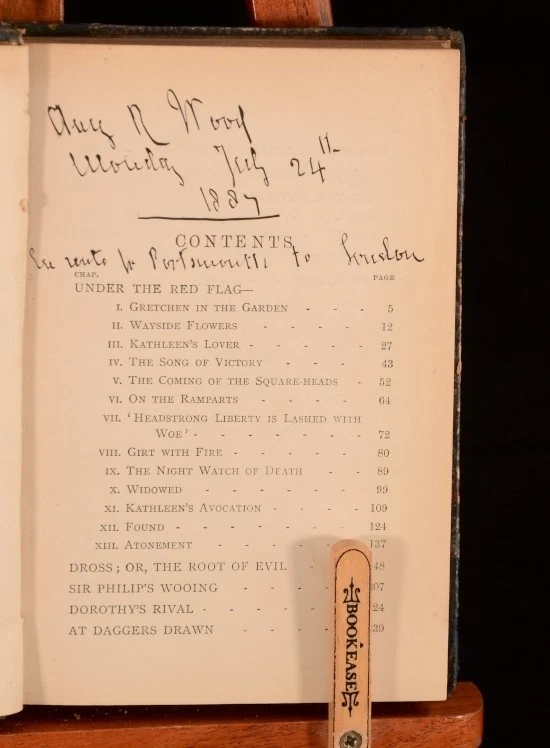 Aug R Wood
Monday July 24th
1887
CONTENTS
En route fr Portsmouth to London
CHAP. PAGE
UNDER THE RED FLAG—
I. GRETCHEN IN THE GARDEN - - - 5
II. WAYSIDE FLOWERS - - - - 12
III. KATHLEEN'S LOVER - - - - 27
IV. THE SONG OF VICTORY - - - 43
V. THE COMING OF THE SQUARE-HEADS - 52
VI. ON THE RAMPARTS - - - - 64
VII. 'HEADSTRONG LIBERTY IS LASHED WITH
WOE' - - - - - - - 72
VIII. GIRT WITH FIRE - - - - - 80
IX. THE NIGHT WATCH OF DEATH - - 89
X. WIDOWED - - - - - - 99
XI. KATHLEEN'S AVOCATION - - - - 109
XII. FOUND - - - - - - - 124
XIII. ATONEMENT - - - - - 137
DROSS; OR, THE ROOT OF EVIL - - 48
SIR PHILIP'S WOOING - - - 07
DOROTHY'S RIVAL - - - - 24
AT DAGGERS DRAWN - - - 39
BOOKEASE